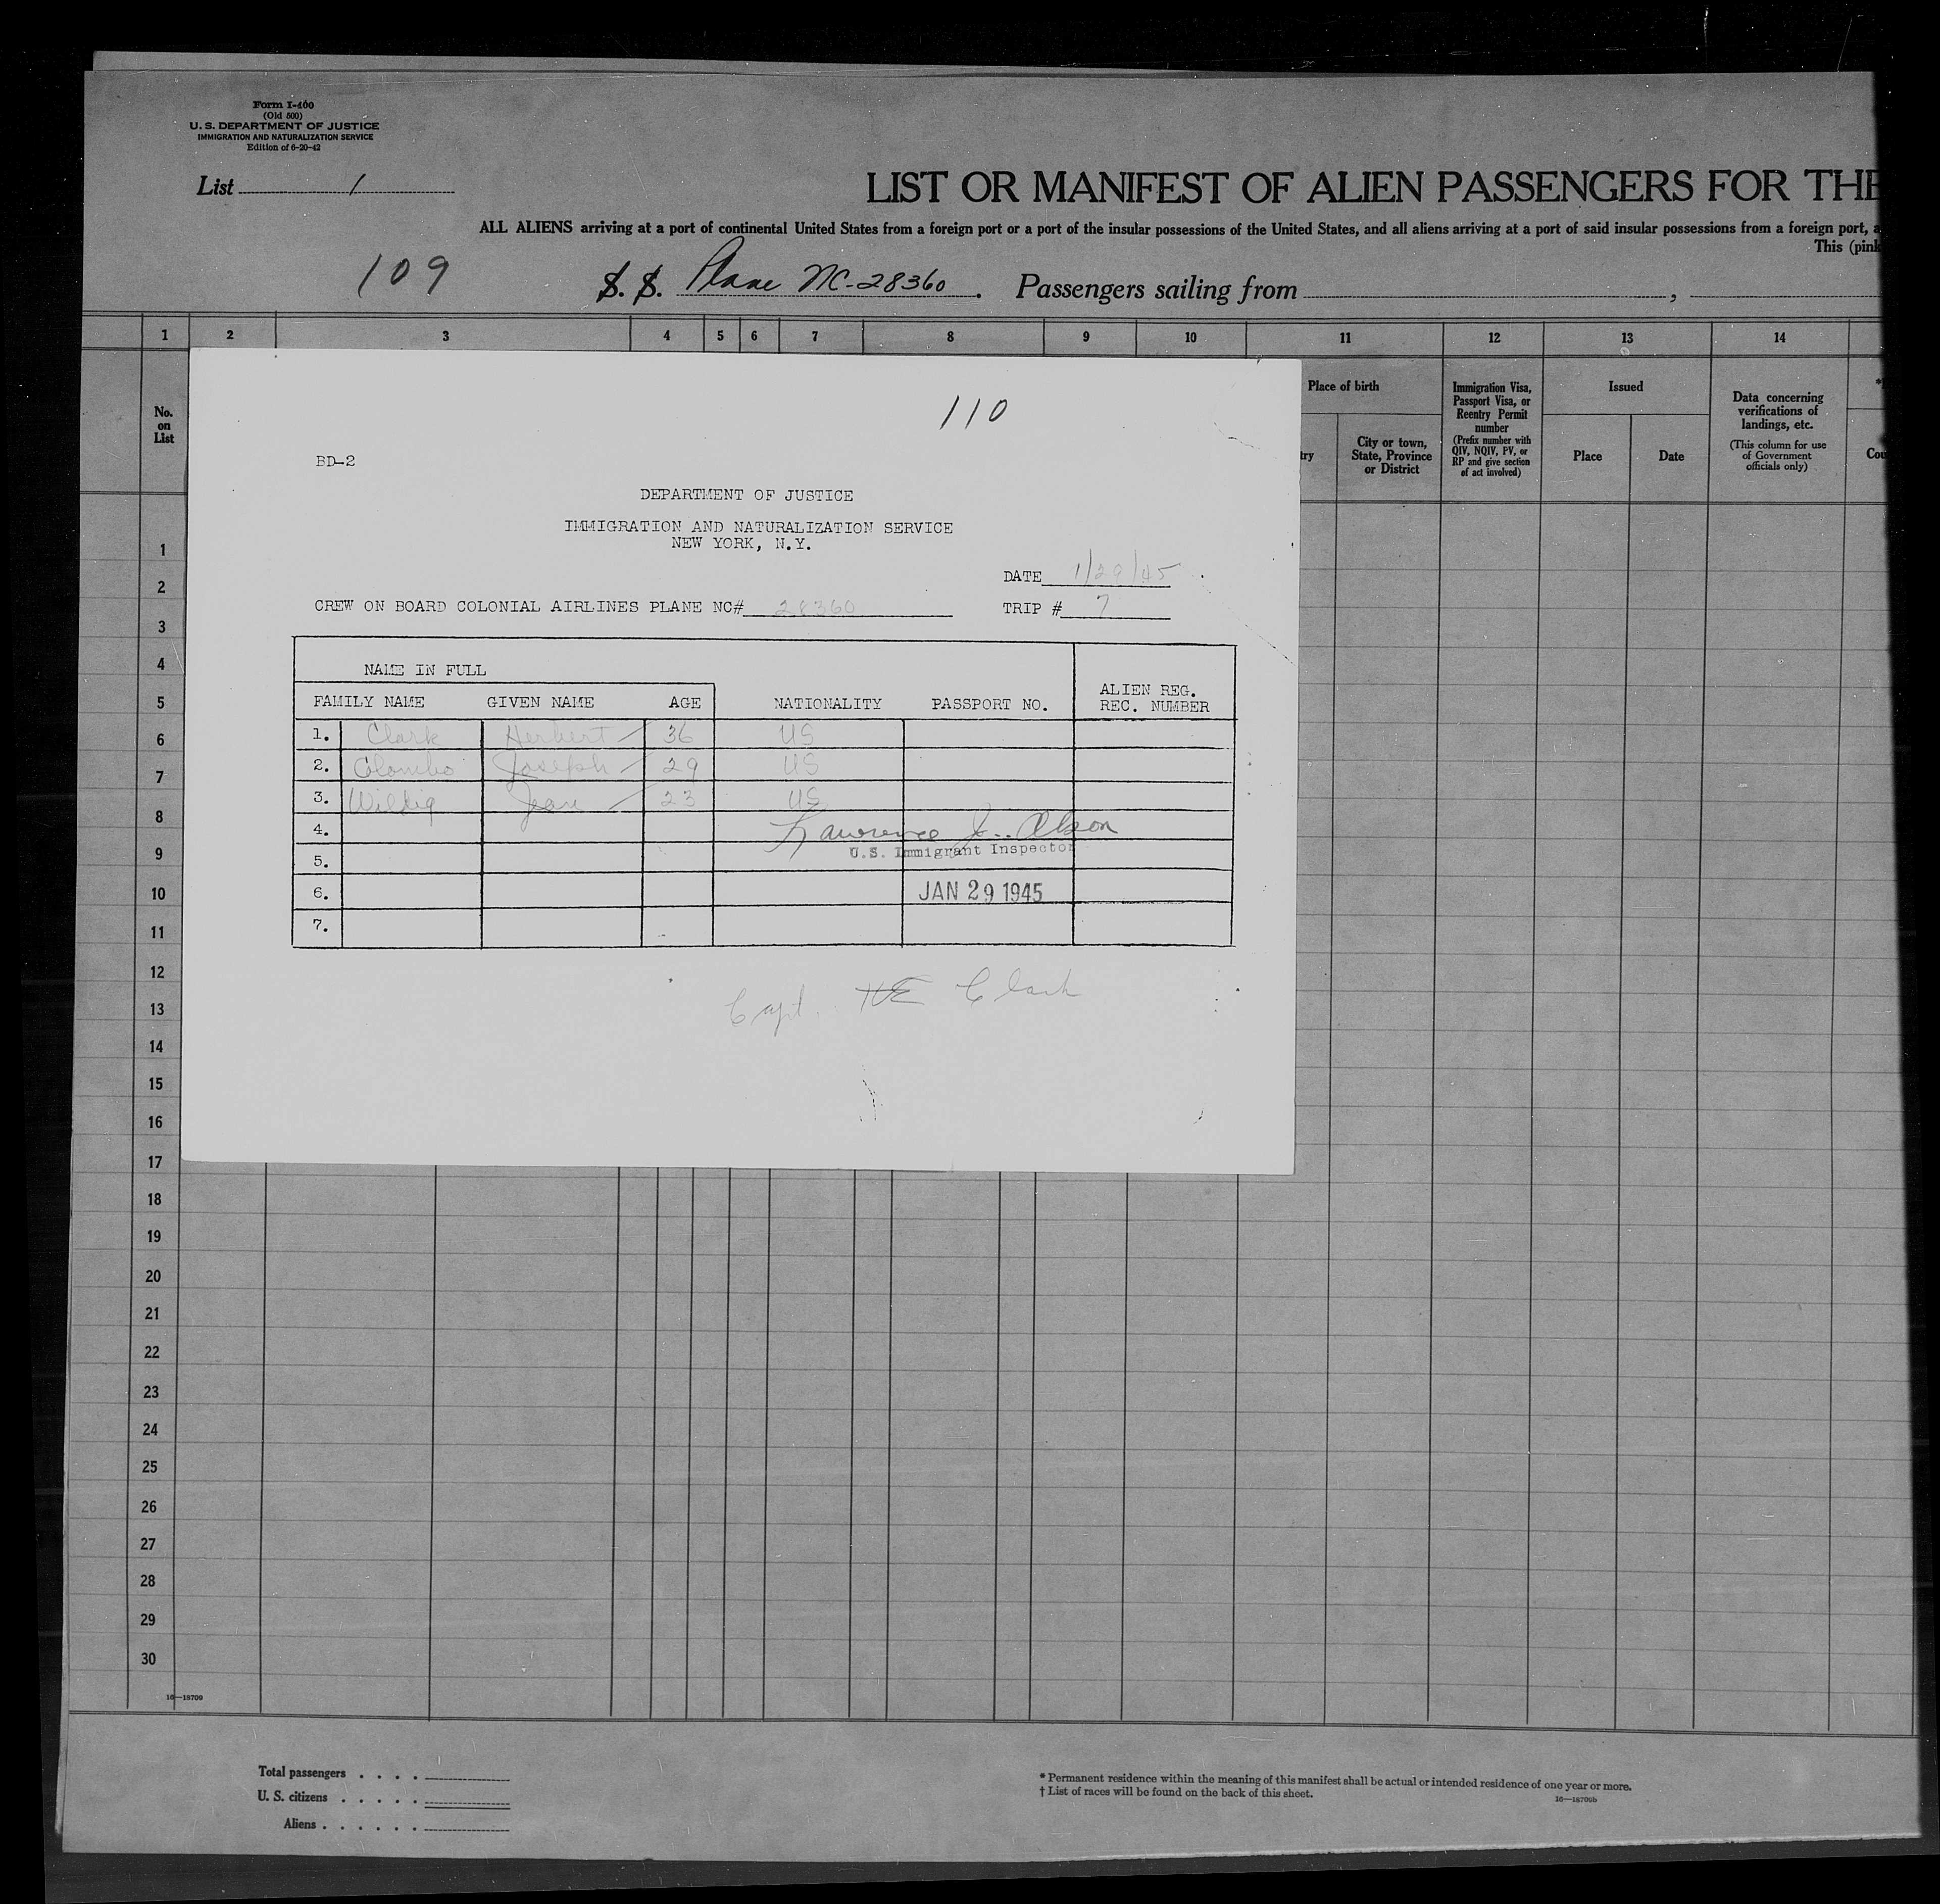 Form I-400
(Old 500)
U. S. DEPARTMENT OF JUSTICE
IMMIGRATION AND NATURALIZATION SERVICE
Edition of 6-20-42
List 1
LIST OR MANIFEST OF ALIEN PASSENGERS FOR THE
ALL ALIENS arriving at a port of continental United States from a foreign port or a port of the insular possessions of the United States, and all aliens arriving at a port of said insular possessions from a foreign port, a
This (pink
109
S. S. Plane NC-28360. Passengers sailing from ,
1 2 3 4 5 6 7 8 9 10 11 12 13 14
No. on List
Place of birth
City or town, State, Province or District
Immigration Visa, Passport Visa, or Reentry Permit number
(Prefix number with QIV, NQIV, PV, or RP and give section of act involved)
Issued
Place
Date
Data concerning verifications of landings, etc.
(This column for use of Government officials only)
110
BD-2
DEPARTMENT OF JUSTICE
IMMIGRATION AND NATURALIZATION SERVICE
NEW YORK, N.Y.
DATE 1/29/45
CREW ON BOARD COLONIAL AIRLINES PLANE NC# 28360 TRIP # 7
NAME IN FULL
FAMILY NAME GIVEN NAME AGE NATIONALITY PASSPORT NO. ALIEN REG. REC. NUMBER
1. Clark Herbert 36 US
2. Colombo Joseph 29 US
3. Jean 23 US
4. Lawrence J. Olson
5. U.S. Immigrant Inspector
6. JAN 29 1945
7.
Capt. HE Clark
1
2
3
4
5
6
7
8
9
10
11
12
13
14
15
16
17
18
19
20
21
22
23
24
25
26
27
28
29
30
16—18709
Total passengers . . . .
U. S. citizens . . . . .
Aliens . . . . . .
* Permanent residence within the meaning of this manifest shall be actual or intended residence of one year or more.
† List of races will be found on the back of this sheet.
16—18709b